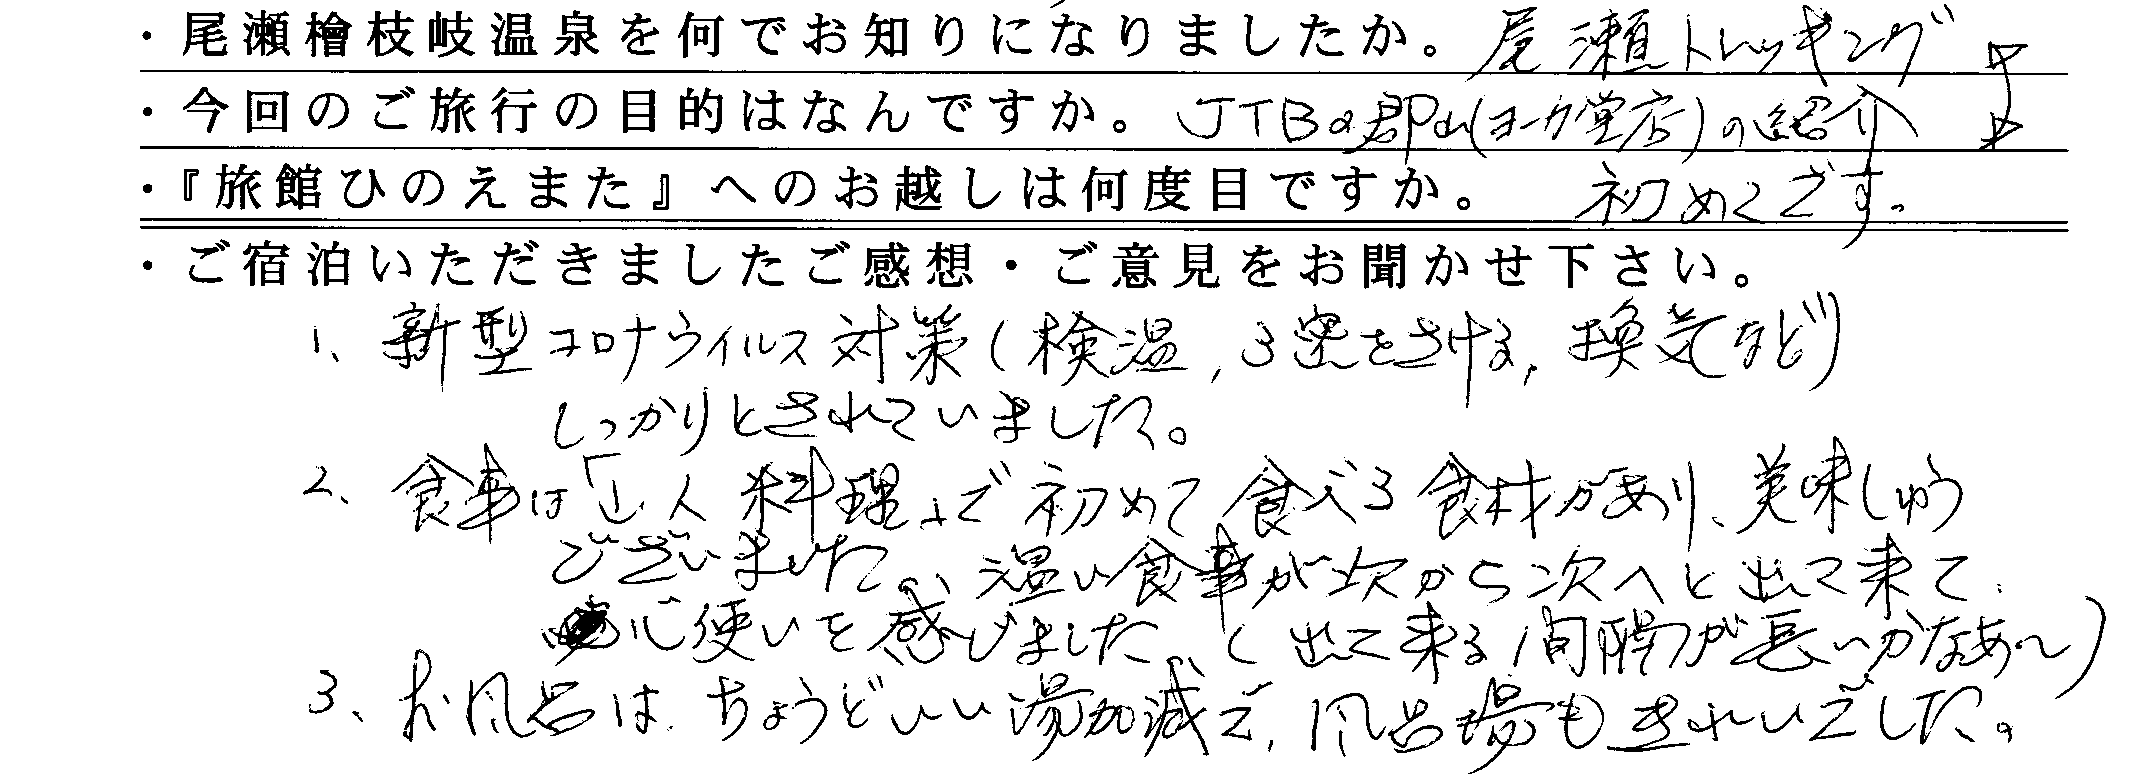 ・尾瀬檜枝岐温泉を何でお知りになりましたか。尾瀬トレッキング
・今回のご旅行の目的はなんですか。JTBの郡山(ヨーカ堂店)の紹介
・『旅館ひのえまた』へのお越しは何度目ですか。初めてです。
・ご宿泊いただきましたご感想・ご意見をお聞かせ下さい。
1、新型コロナウイルス対策(検温,3密をさける,換気など)
しっかりとされていました。
2、食事は「山人料理」で初めて食べる食材があり、美味しゅう
ございました。温い食事が次から次へと出て来て
心使いを感じました(出て来る間隔が長いかなあ〜)
3、お風呂は、ちょうどいい湯加減で、風呂場もきれいでした。